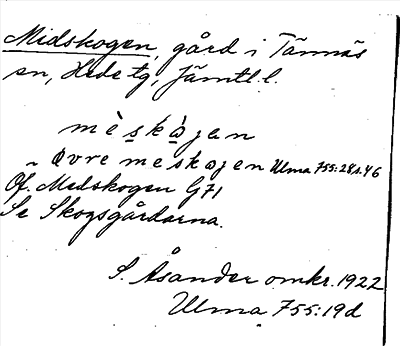 Midskogen, gård i Tännäs
sn, Hede tg, Jämtl. l.
mèskàjen
Øvre meskøjen Ulma 755:28 s. 46
Öf. Medskogen G71
Se Skogsgårdarna.
S. Åsander omkr. 1922
Ulma 755:19d